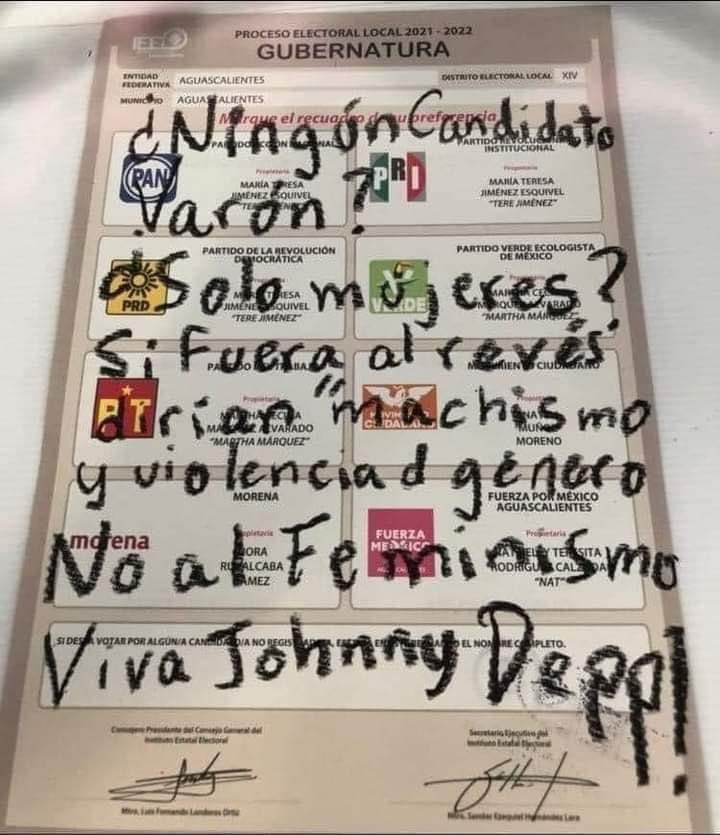 IEE
PROCESO ELECTORAL LOCAL 2021 - 2022
GUBERNATURA
ENTIDAD FEDERATIVA AGUASCALIENTES
DISTRITO ELECTORAL LOCAL XIV
MUNICIPIO AGUASCALIENTES
Marque el recuadro de su preferencia
¿Ningún Candidato
PARTIDO REVOLUCIONARIO
INSTITUCIONAL
PAN
Propietaria
MARÍA TERESA
JIMÉNEZ ESQUIVEL
PRI
Propietaria
MARÍA TERESA
JIMÉNEZ ESQUIVEL
"TERE JIMÉNEZ"
Varón?
PARTIDO DE LA REVOLUCIÓN
DEMOCRÁTICA
PARTIDO VERDE ECOLOGISTA
DE MÉXICO
¿Solo mujeres?
PRD
JIMÉNEZ ESQUIVEL
"TERE JIMÉNEZ"
VERDE
"MARTHA MÁRQUEZ"
Si fuera al revés
MOVIMIENTO CIUDADANO
PT
"MARTHA MÁRQUEZ"
MOVIMIENTO
CIUDADANO
MORENO
dirían "machismo
y violencia d género
MORENA
FUERZA POR MÉXICO
AGUASCALIENTES
morena
Propietaria
NORA
RUVALCABA
GÁMEZ
FUERZA
MÉXICO
Propietaria
"NAT"
No al Feminismo
SI DESEA VOTAR POR ALGÚN/A CANDIDATO/A NO REGISTRADO/A, EL NOMBRE COMPLETO.
Viva Johnny Depp!
Consejero Presidente del Consejo General del
Instituto Estatal Electoral
Secretario Ejecutivo del
Instituto Estatal Electoral
Mtro. Luis Fernando Landeros Ortiz
Mtro. Sandor Ezequiel Hernández Lara